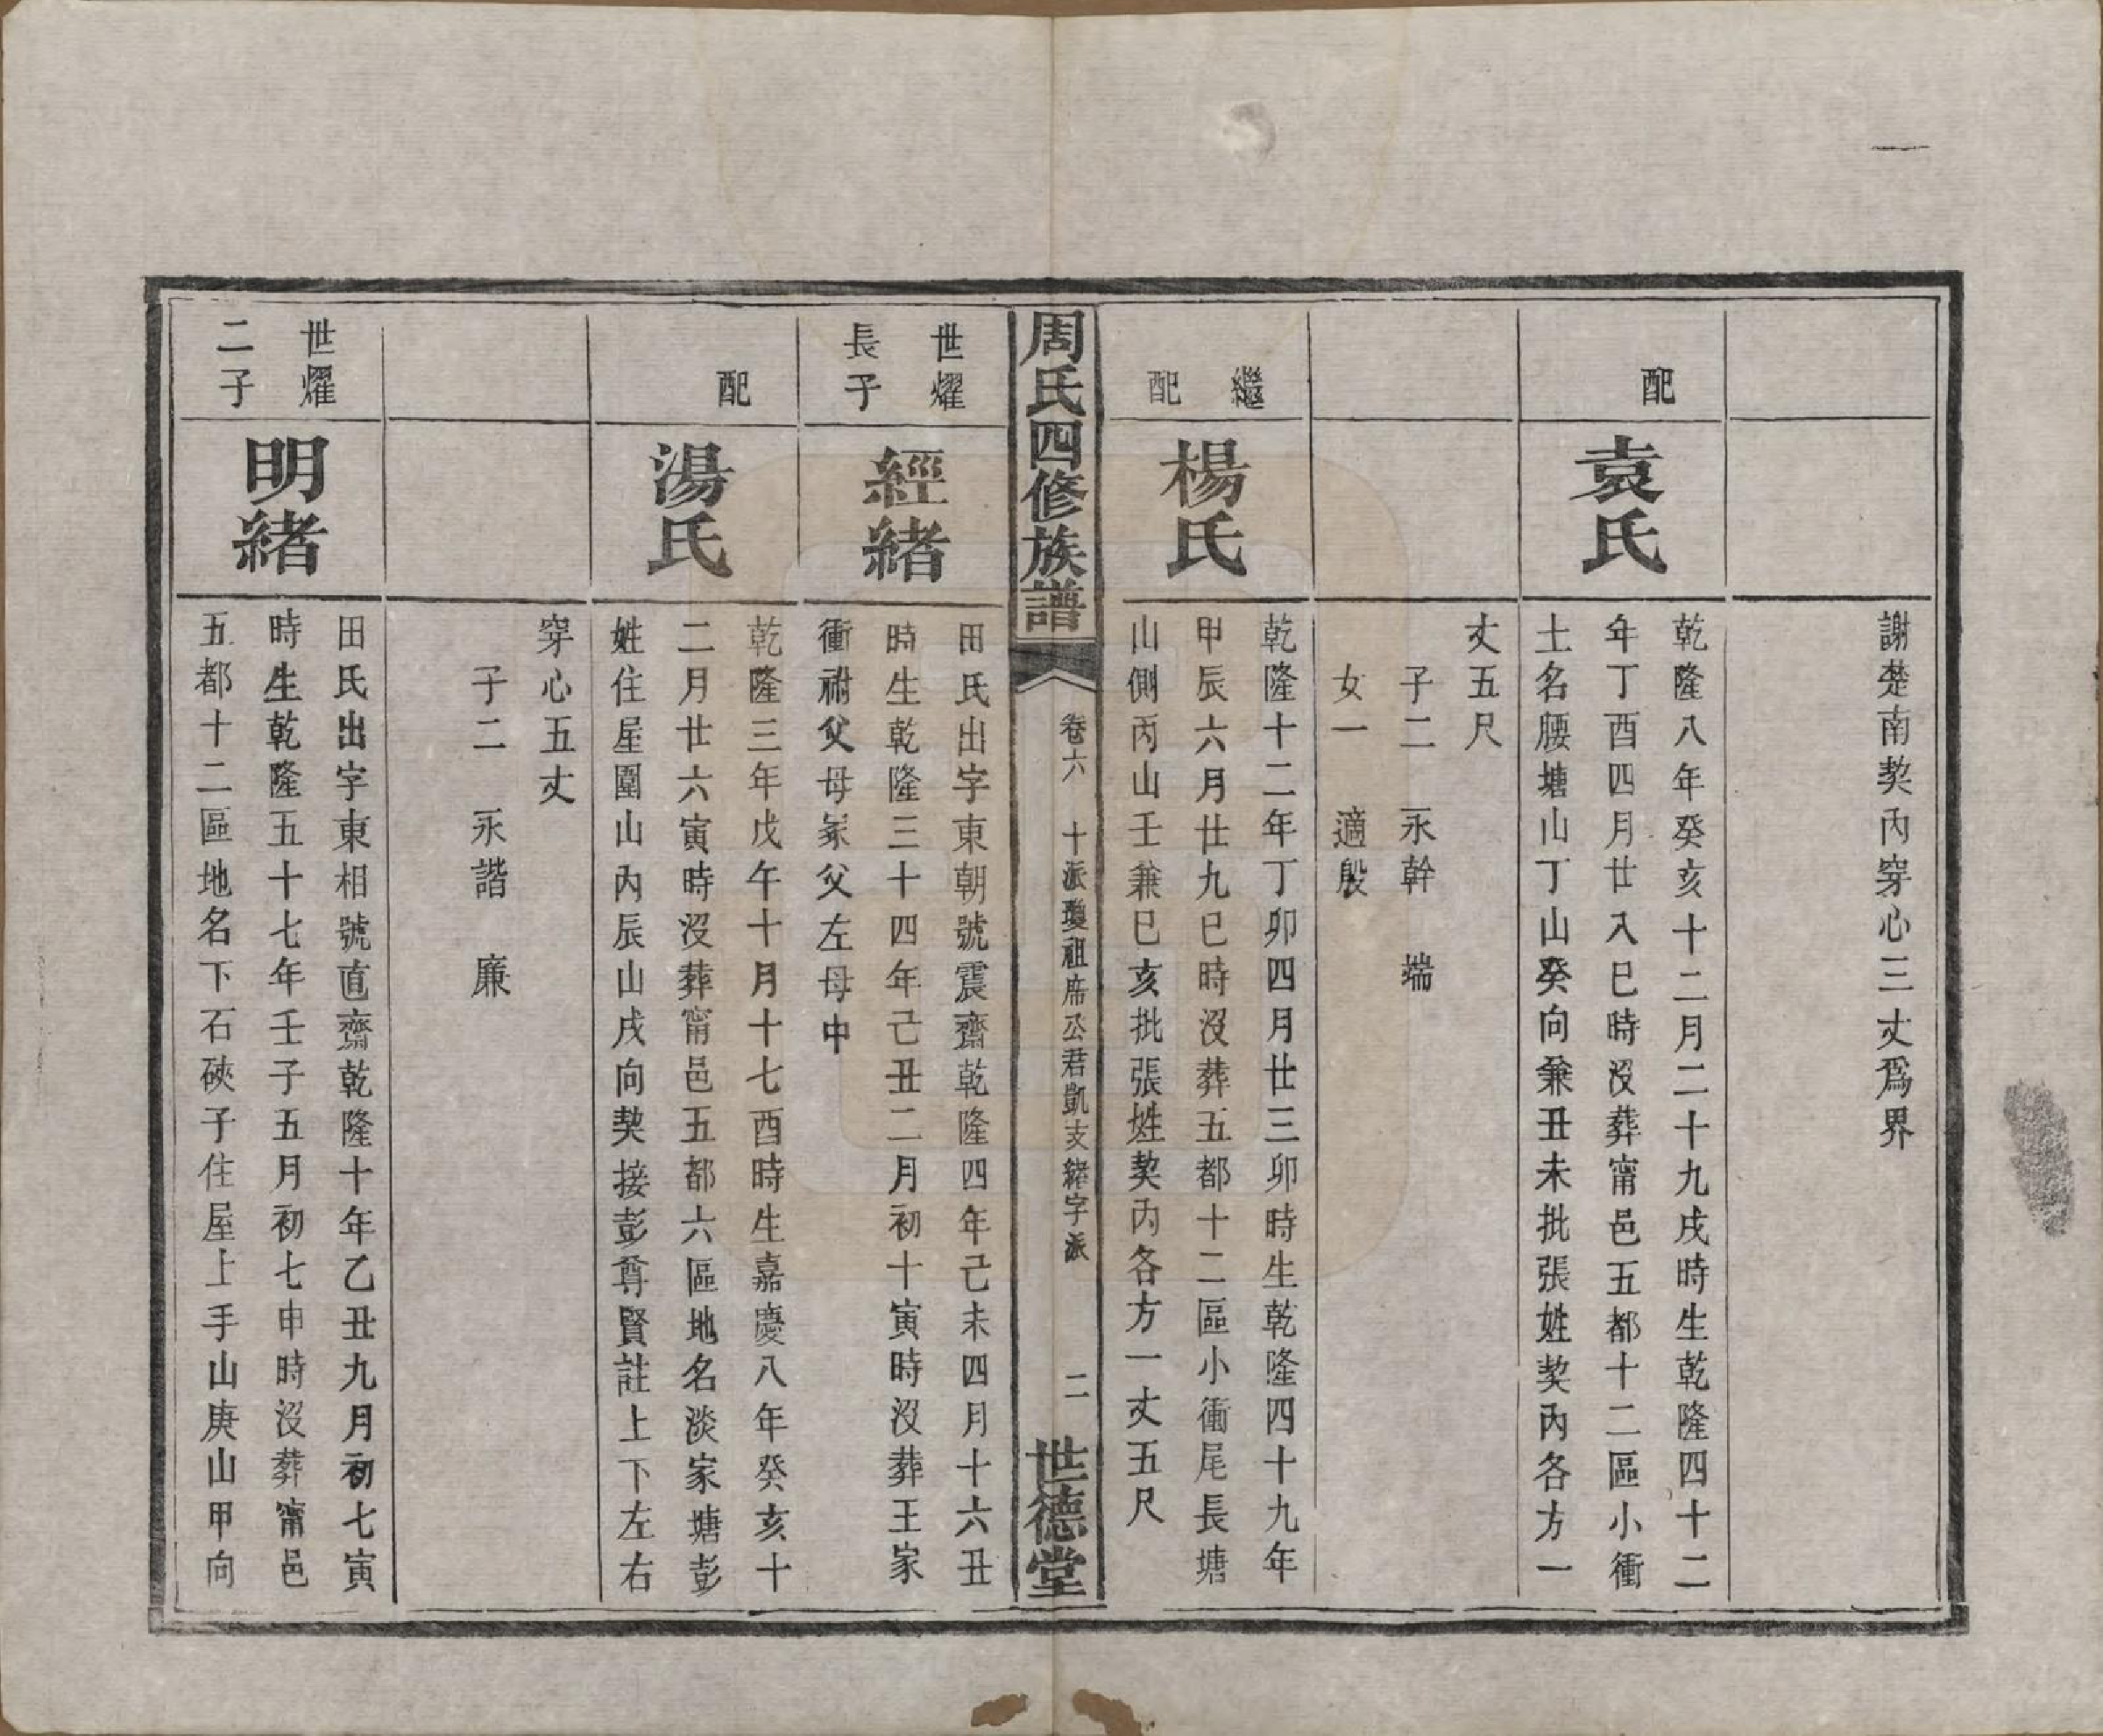 謝楚南契內穿心三丈爲界
配
袁氏
乾隆八年癸亥十二月二十九戌時生乾隆四十二
年丁酉四月廿入巳時沒葬甯邑五都十二區小衝
土名腰塘山丁山癸向兼丑未批張姓契內各方一
丈五尺
子二 永幹 端
女一 適殷
繼
配
楊氏
乾隆十二年丁卯四月廿三卯時生乾隆四十九年
甲辰六月廿九巳時沒葬五都十二區小衝尾長塘
山側丙山壬兼巳亥批張姓契內各方一丈五尺
周氏四修族譜
卷六 十派瓊祖席公君凱支緒字派 二
世德堂
世燿
長子
經緒
田氏出字東朝號震齋乾隆四年己未四月十六丑
時生乾隆三十四年己丑二月初十寅時沒葬王家
衝祔父母冢父左母中
配
湯氏
乾隆三年戊午十月十七酉時生嘉慶八年癸亥十
二月廿六寅時沒葬甯邑五都六區地名淡家塘彭
姓住屋圍山內辰山戌向契接彭尊賢註上下左右
穿心五丈
子二 永諧 廉
世燿
二子
明緒
田氏出字東相號直齋乾隆十年乙丑九月初七寅
時生乾隆五十七年壬子五月初七申時沒葬甯邑
五都十二區地名下石硤子住屋上手山庚山甲向